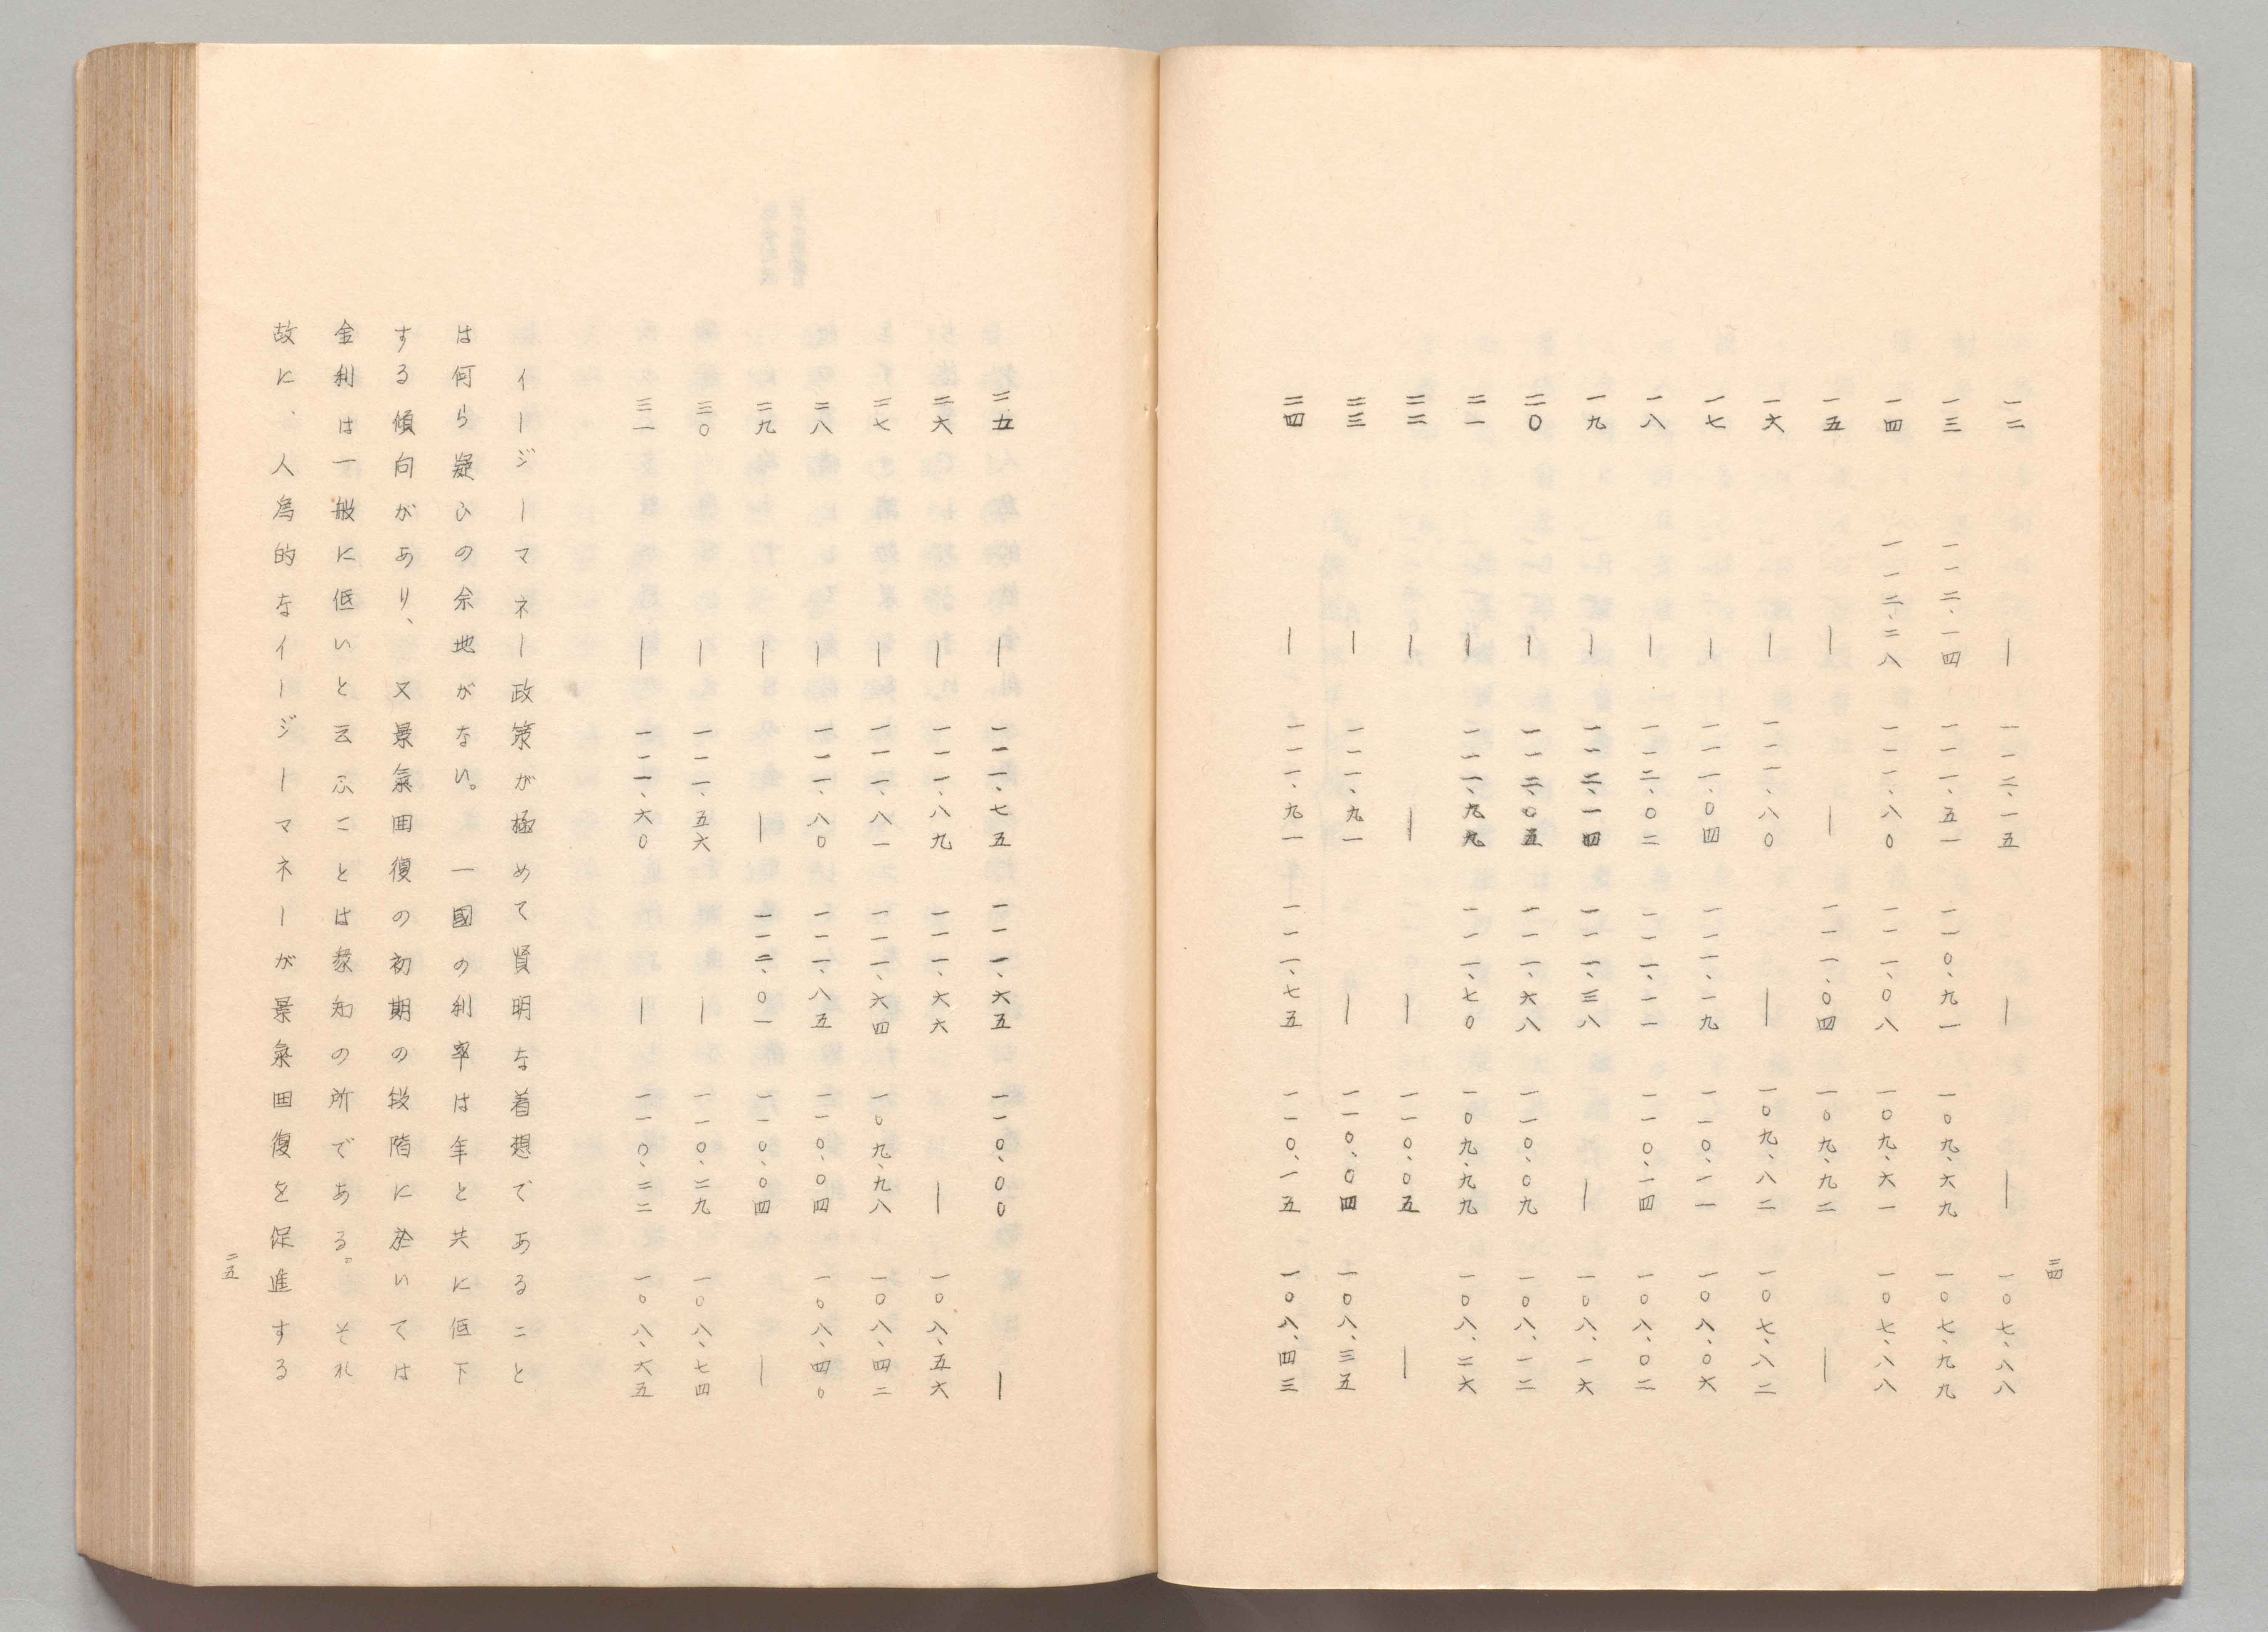 二四
一二 ― 一一二、一五 ― ― 一〇七、八八
一三 一一二、一四 一一一、五一 一一〇、九一 一〇九、六九 一〇七、九九
一四 一一二、二八 一一一、八〇 一一一、〇八 一〇九、六一 一〇七、八八
一五 ― ― 一一一、〇四 一〇九、九二 ―
一六 ― 一一一、八〇 ― 一〇九、八二 一〇七、八二
一七 ― 一一一、〇四 一一一、一九 一一〇、一一 一〇八、〇六
一八 ― 一一二、〇二 一一一、一一 一一〇、一四 一〇八、〇二
一九 ― 一一二、一四 一一一、三八 ― 一〇八、一六
二〇 ― 一一二、〇五 一一一、六八 一一〇、〇九 一〇八、一二
二一 ― 一一一、九九 一一一、七〇 一〇九、九九 一〇八、二六
二二 ― ― ― 一一〇、〇五 ―
二三 ― 一一一、九一 ― 一一〇、〇四 一〇八、三五
二四 ― 一一一、九一 一一一、七五 一一〇、一五 一〇八、四三
二五 ― 一一一、七五 一一一、六五 一一〇、〇〇 ―
二六 ― 一一一、八九 一一一、六六 ― 一〇八、五六
二七 ― 一一一、八一 一一一、六四 一〇九、九八 一〇八、四二
二八 ― 一一一、八〇 一一一、八五 一一〇、〇四 一〇八、四〇
二九 ― ― 一一二、〇一 一一〇、〇四 ―
三〇 ― 一一一、五六 ― 一一〇、二九 一〇八、七四
三一 ― 一一一、六〇 ― 一一〇、二二 一〇八、六五
イージーマネー政策が極めて賢明な着想であること
は何ら疑ひの余地がない。一國の利率は年と共に低下
する傾向があり、又景氣囬復の初期の段階に於いては
金利は一般に低いと云ふことは衆知の所である。それ
故に、人為的なイージーマネーが景氣囬復を促進する
二五